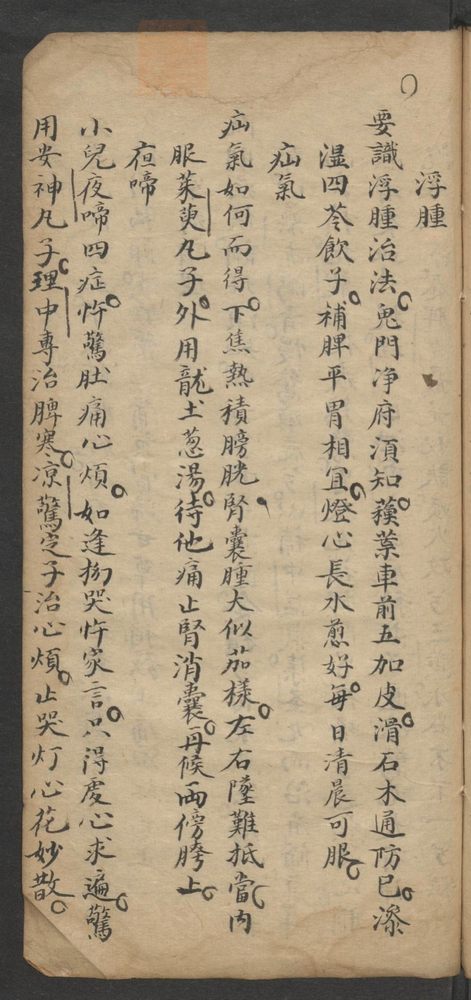 浮腫
要識浮腫治法。鬼門净府須知。蘋葉車前五加皮。滑石木通防已。滲
湿四苓飲子。補脾平胃相宜。燈心長水煎好。每日清晨可服。
疝氣
疝氣如何而得。下焦熱積膀胱。腎囊腫大似茄樣。左右墜難抵當。内
服茱萸丸子。外用龍土葱湯。待他痛止腎消囊。再候両傍胯上。
夜啼
小兒夜啼四症。忤驚肚痛心煩。如逢拗哭忤家言。只得虔心求遍。驚
用安神丸子。理中專治脾寒。凉驚定子治心煩。止哭灯心花妙散。